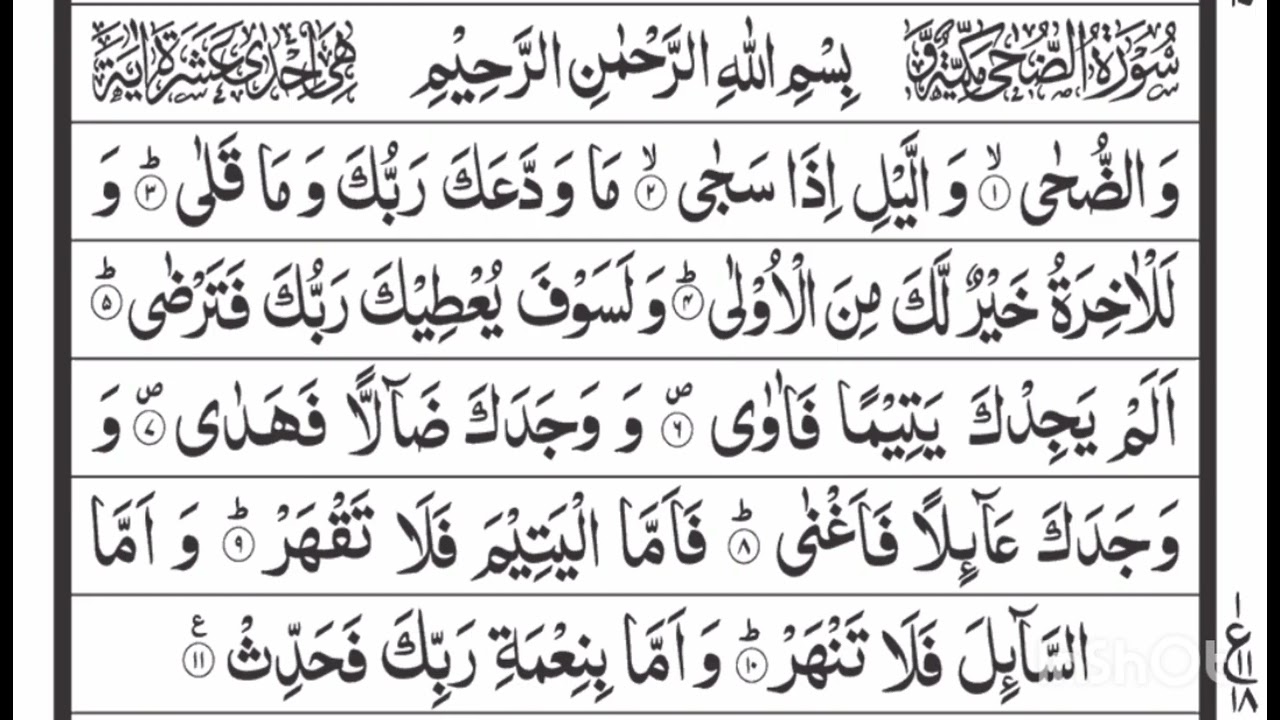 سُوْرَةُ الضُّحٰى مَكِّيَّةٌ وَّ بِسْمِ اللّٰهِ الرَّحْمٰنِ الرَّحِيْمِ هِىَ اِحْدٰى عَشَرَةَ اٰيَةً
وَ الضُّحٰى ۙ۝۱ وَ الَّيْلِ اِذَا سَجٰى ۙ۝۲ مَا وَدَّعَكَ رَبُّكَ وَ مَا قَلٰى ؕ۝۳ وَ
لَلْاٰخِرَةُ خَيْرٌ لَّكَ مِنَ الْاُوْلٰى ؕ۝۴ وَ لَسَوْفَ يُعْطِيْكَ رَبُّكَ فَتَرْضٰى ؕ۝۵
اَلَمْ يَجِدْكَ يَتِيْمًا فَاٰوٰى ۪۝۶ وَ وَجَدَكَ ضَآلًّا فَهَدٰى ۪۝۷ وَ
وَجَدَكَ عَآىِٕلًا فَاَغْنٰى ؕ۝۸ فَاَمَّا الْيَتِيْمَ فَلَا تَقْهَرْ ؕ۝۹ وَ اَمَّا
السَّآىِٕلَ فَلَا تَنْهَرْ ؕ۝۱۰ وَ اَمَّا بِنِعْمَةِ رَبِّكَ فَحَدِّثْ ۝۱۱ ع
۱
ع
۱۱
۱۸
InShOt